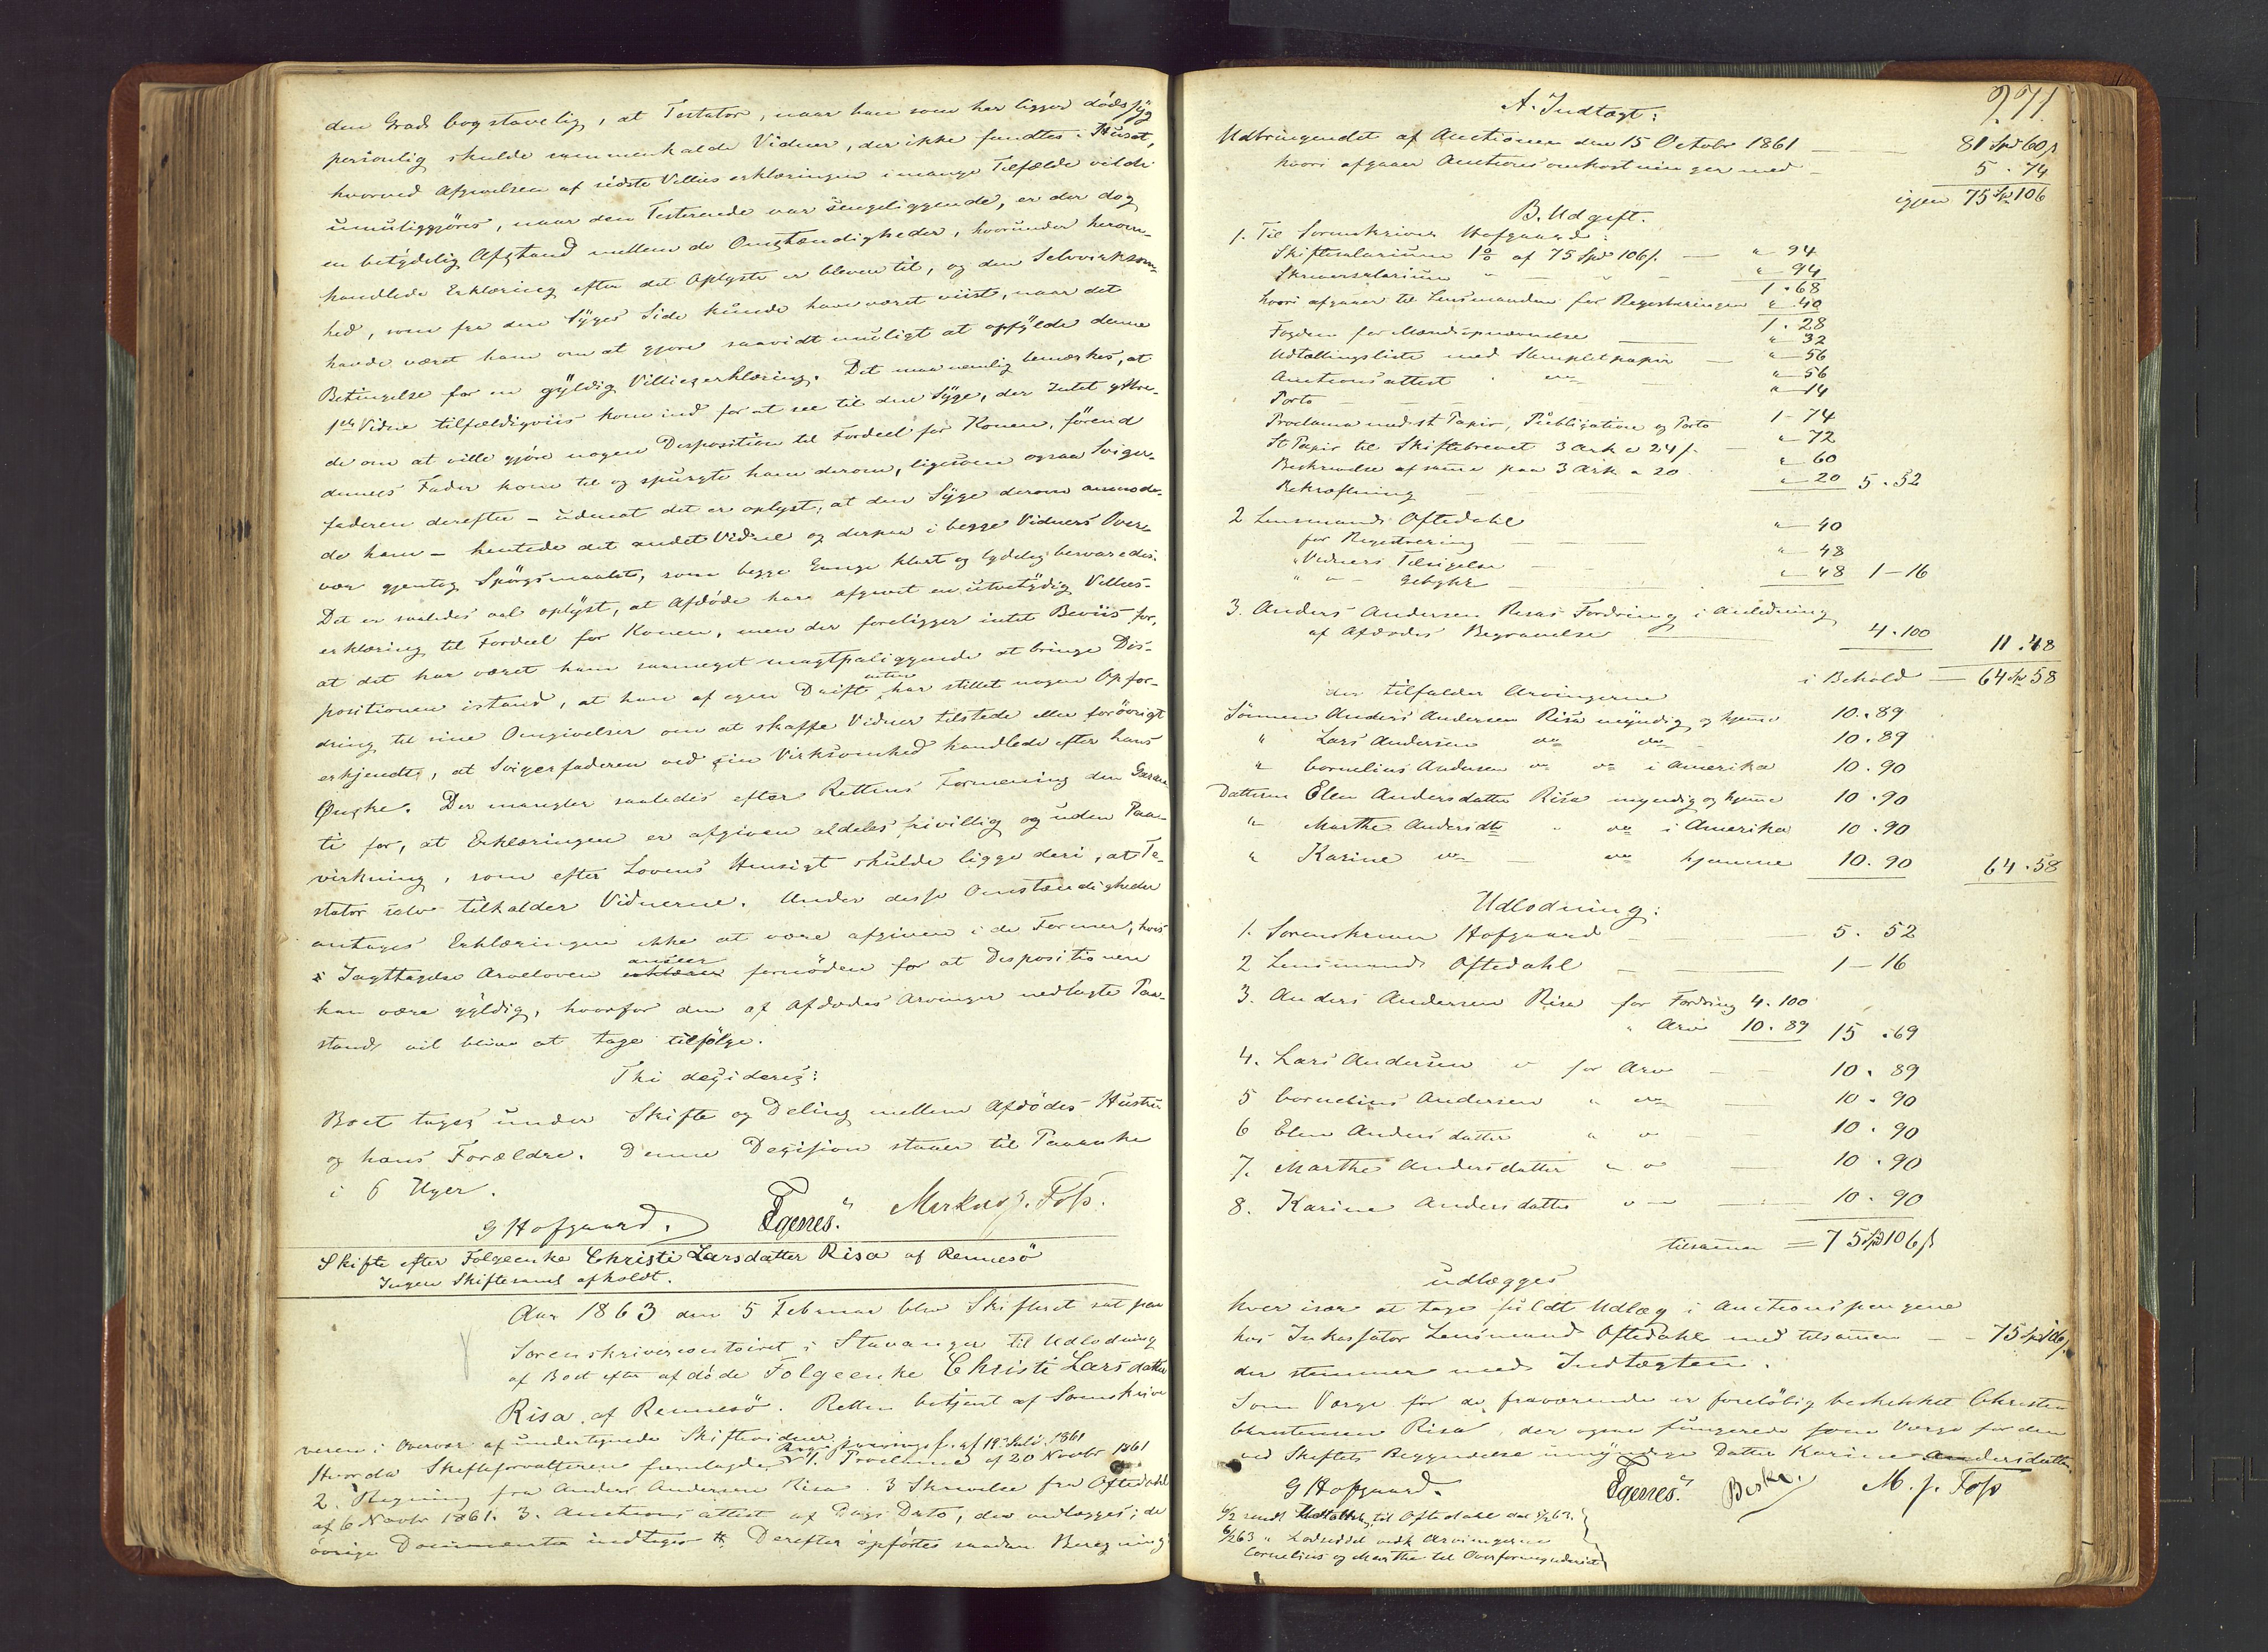 den Grad bogstavelig, at Testator, naar han som her ligger dödssyg
personlig skulde sammenkalde Vidner, der ikke fandtes i Huset,
hvorved Afgivelsen af sidste Villies erklæringen i mange Tilfælde vilde
umuliggjöres, naar den Testerende var sengeliggende, er der dog
en betydelig Afstand mellem de Omstændigheder, hvorunder herom-
handlede Erklæring efter det Oplyste er bleven til, og den Selvvirksom-
hed, som fra den Syges Side kunde have været viist, naar det
havde været ham om at gjøre saavidt muligt at opfylde denne
Betingelse for en gyldig Villieserklæring. Det maa nemlig bemærkes, at
1ste Vidne tilfældigviis kom ind for at see til den Syge, der Intet yttre-
de om at ville gjöre nogen Disposition til Fordeel for Konen, förend
dennes Fader kom til og spurgte ham derom, ligesom ogsaa Sviger-
faderen derefter – uden at det er oplyst, at den Syge derom anmode-
de ham – hentede det andet Vidne og derpaa i begge Vidners Over-
vær gjentog Spörgsmaalet, som begge Gange klart og tydelig besvaredes.
Det er saaledes vel oplyst, at Afdöde har afgivet en utvetydig Villies-
erklæring til Fordeel for Konen, men der foreligger intet Beviis for,
at det har været ham saameget magtpaaliggende at bringe Dis-
positionen istand, at han af egen Drift har stillet nogen Opfor-
dring til sine Omgivelser om at skaffe Vidner tilstede eller forövrigt
erkjendt, at Svigerfaderen ved sin Virksomhed handlede efter hans
Ønske. Der mangler saaledes efter Rettens Formening den Garan
ti for, at Erklæringen er afgiven aldeles frivillig og uden Paa-
virkning, som efter Lovens Hensigt skulde ligge deri, at Te-
stator selv tilkalder Vidnerne. Under disse Omstændigheder
antages Erklæringen ikke at være afgiven i de Former, hvis
Iagttagelse Arveloven anseer fornöden for at Dispositionen
kan være gyldig, hvorfor den af Afdödes Arvinger nedlagte Paa-
stand vil blive at tage tilfölge.
Thi decideres:
Boet tages under Skifte og Deling mellem Afdödes Hustru
og hans Forældre. Denne Decision staaer til Paaanke
i 6 Uger.
G Hofgaard. Egenes. Markus J. Foss.
Skifte efter Folgeenke Christi Larsdatter Risa af Rennesö
Ingen Skiftesaml afholdt.
Aar 1863 den 5 Februar blev Skifteret sat paa
Sorenskrivercontoiret i Stavanger til Udlodning
af Boet efter afdöde Folgeenke Christi Larsdatter
Risa af Rennesö. Retten betjent af Sorenskrive
veren i Overvær af undertegnede Skiftevidner.
Hvorda Skifteforvalteren fremlagde Registreringsf. af 19 Juli 1861
1. Proclama af 20 Novbr 1861
2. Regning fra Anders Andersen Risa 3 Skrivelse fra Oftedahl
af 6 Novbr 1861. 3. Auctions attest af Dags Dato, der vedlægges; de
övrige Documenter indtages Derefter opförtes saadan Beregning
271
A. Indtægt:
Udbringendet af Auctionen den 15 Octobr 1861 — 81 Spd 60 s
hvori afgaaer Auctionsomkostninger med – 5 . 74
igjen 75 Spd 106
B. Udgift.
1. Til Sorenskriver Hofgaard:
Skiftesalarium 1% af 75 Spd 106 s. — " 94
Skriversalarium " – " – " 94
1 . 68
hvori afgaaer til Lensmanden for Registreringen " 40
1 . 28
Fogden for Mændsopnævnelse — " 32
Udtallingsliste med Stemplet papir — " 56
Auctionsattest " do " 56
Porto — " 14
Proclama med st Papir, Publication og Porto 1 – 74
St Papir til Skiftebrevet 3 Ark a 24 s. " 72
Beskrivelse af samme paa 3 Ark a 20 " 60
Bekræftning " 20 5 . 52
2 Lensmand Oftedahl
for Registrering — " 40
" Vidners Tilsigelse — " 48
" " Gebyhr — " 48 1 – 16
3. Anders Andersen Risas Fordring i Anledning
af Afdödes Begravelse — 4 . 100 11 . 48
i Behold — 64 Spd 58
der tilfalder Arvingerne
Sönnen Anders Andersen Risa myndig og hjemme 10 . 89
" Lars Andersen do do 10 . 89
" Cornelius Andersen do do i Amerika 10 . 90
Datteren Elen Andersdatter Risa myndig og hjemme 10 . 90
" Marthe Andersdtr " do i Amerika 10 . 90
" Karine do — do hjemme 10 . 90 64 . 58
Udlodning:
1. Sorenskriver Hofgaard — 5 . 52
2 Lensmand Oftedahl — 1 – 16
3. Anders Andersen Risa for Fordring 4 . 100
" Arv 10 . 89 15 . 69
4. Lars Andersen " for Arv — 10 . 89
5 Cornelius Andersen " do — 10 . 90
6 Elen Andersdatter " " 10 . 90
7. Marthe Andersdatter " " — 10 . 90
8. Karine Andersdatter " — 10 . 90
tilsammen = 75 Spd 106 s
udlægges
hver især at tage fuldt Udlæg i Auctionspengene
hos Inkassator Lensmand Oftedahl med tilsammen – – 75 Spd 106 s.
der stemmer med Indtægten.
Som Værge for de fraværende er forelöbig beskikket Christen
Christensen Risa, der ogsaa fungerede som Værge for den
ved Skiftets Begyndelse umyndige Datter Karine Andersdatter
G Hofgaard. Egenes. Beskr. M. J. Foss
6/2 sendt til Oftedahl
6/2 63 " Lodseddel vedk Arvingerne
Cornelius og Marthe til Overformynderiet